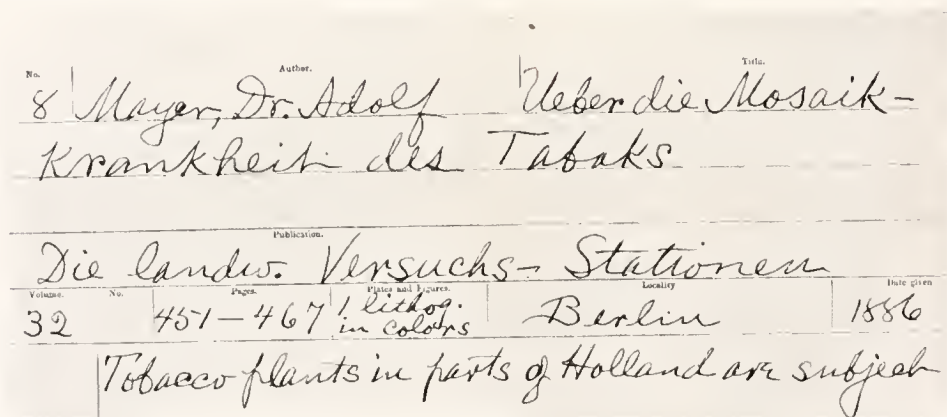 No. Author. Title.
8 Mayer, Dr. Adolf Ueber die Mosaik-
Krankheit des Tabaks
Publication.
Die landw. Versuchs-Stationen
Volume. No. Pages. Plates and Figures. Locality Date given
32 451-467 1 lithog. in colours Berlin 1886
Tobacco plants in parts of Holland are subject